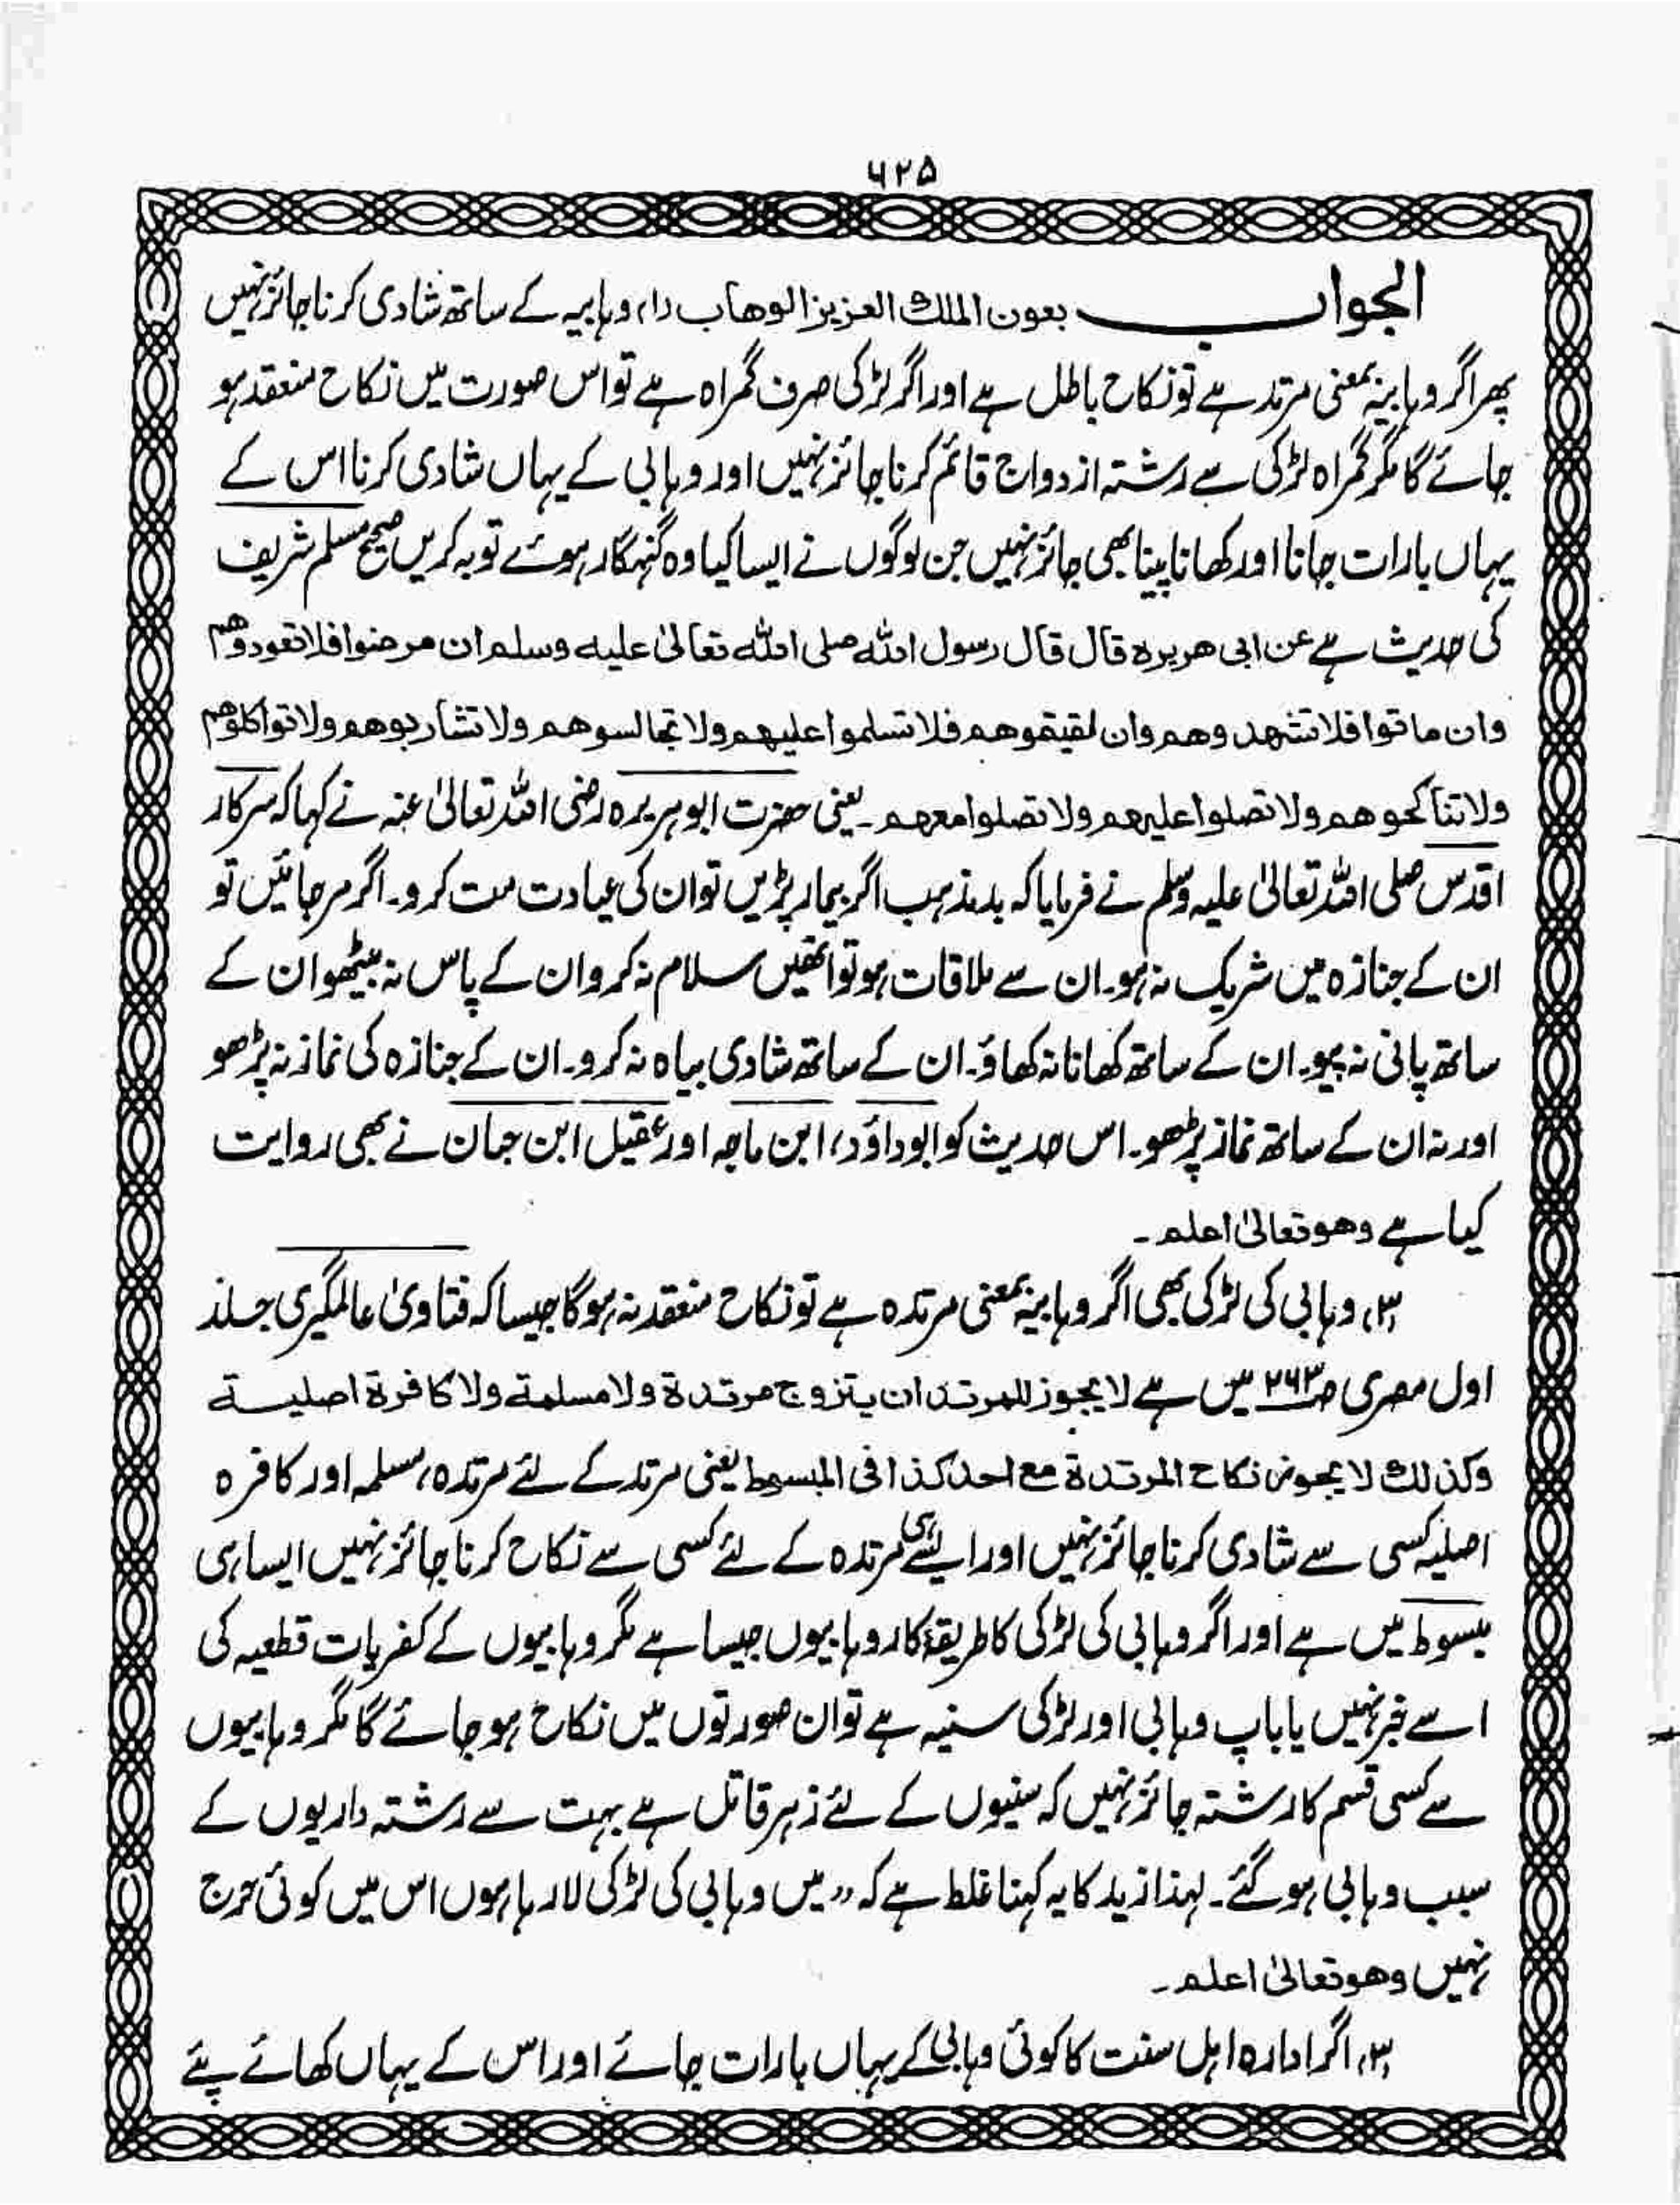 ۶۲۵
الجواب بعون الملك العزیز الوھاب (۱) وہابیہ کے ساتھ شادی کرنا جائز نہیں
پھر اگر وہابیہ بمعنی مرتد ہے تو نکاح باطل ہے اور اگر لڑکی صرف گمراہ ہے تو اس صورت میں نکاح منعقد ہو
جائے گا مگر گمراہ لڑکی سے رشتہ ازدواج قائم کرنا جائز نہیں اور وہابی کے یہاں شادی کرنا اس کے
یہاں بارات جانا اور کھانا پینا بھی جائز نہیں جن لوگوں نے ایسا کیا وہ گنہگار ہوئے توبہ کریں صحیح مسلم شریف
کی حدیث ہے عن ابی ھریرہ قال قال رسول اللہ صلی اللہ تعالیٰ علیہ وسلم ان مرضوا فلا تعودوھم
وان ماتوا فلا تشھدوھم وان لقیقموھم فلا تسلموا علیھم ولا تجالسوھم ولا تشاربوھم ولا تواکلوھم
ولا تناکحوھم ولا تصلوا علیھم ولا تصلوا معھم ۔ یعنی حضرت ابو ہریرہ رضی اللہ تعالیٰ عنہ نے کہا کہ سرکار
اقدس صلی اللہ تعالیٰ علیہ وسلم نے فرمایا کہ بدمذہب اگر بیمار پڑیں تو ان کی عیادت مت کرو۔ اگر مرجائیں تو
ان کے جنازہ میں شریک نہ ہو۔ ان سے ملاقات ہو تو انھیں سلام نہ کرو ان کے پاس نہ بیٹھو ان کے
ساتھ پانی نہ پیو۔ ان کے ساتھ کھانا نہ کھاؤ۔ ان کے ساتھ شادی بیاہ نہ کرو۔ ان کے جنازہ کی نماز نہ پڑھو
اور نہ ان کے ساتھ نماز پڑھو۔ اس حدیث کو ابوداؤد، ابن ماجہ اور عقیل ابن حبان نے بھی روایت
کیا ہے وھو تعالیٰ اعلم ۔
(۳) وہابی کی لڑکی بھی اگر وہابیہ بمعنی مرتدہ ہے تو نکاح منعقد نہ ہوگا جیسا کہ فتاویٰ عالمگیری جلد
اول مصری صـ۲۶۳ میں ہے لا یجوز للمرتد ان یتزوج مرتدة ولا مسلمة ولا کافرة اصلیة
وکذلك لا یجوز نکاح المرتدة مع احد کذا فی المبسوط یعنی مرتد کے لئے مرتدہ، مسلمہ اور کافرہ
اصلیہ کسی سے شادی کرنا جائز نہیں اور ایسے ہی مرتدہ کے لئے کسی سے نکاح کرنا جائز نہیں ایسا ہی
مبسوط میں ہے اور اگر وہابی کی لڑکی کا طریقۂ کار وہابیوں جیسا ہے مگر وہابیوں کے کفریات قطعیہ کی
اسے خبر نہیں یا باپ وہابی اور لڑکی سنیہ ہے تو ان صورتوں میں نکاح ہو جائے گا مگر وہابیوں
سے کسی قسم کا رشتہ جائز نہیں کہ سنیوں کے لئے زہر قاتل ہے بہت سے رشتہ داریوں کے
سبب وہابی ہو گئے۔ لہذا زید کا یہ کہنا غلط ہے کہ "میں وہابی کی لڑکی لا رہا ہوں اس میں کوئی حرج
نہیں وھو تعالیٰ اعلم ۔
(۳) اگر ادارہ اہل سنت کا کوئی وہابی کے یہاں بارات جائے اور اس کے یہاں کھائے پئے